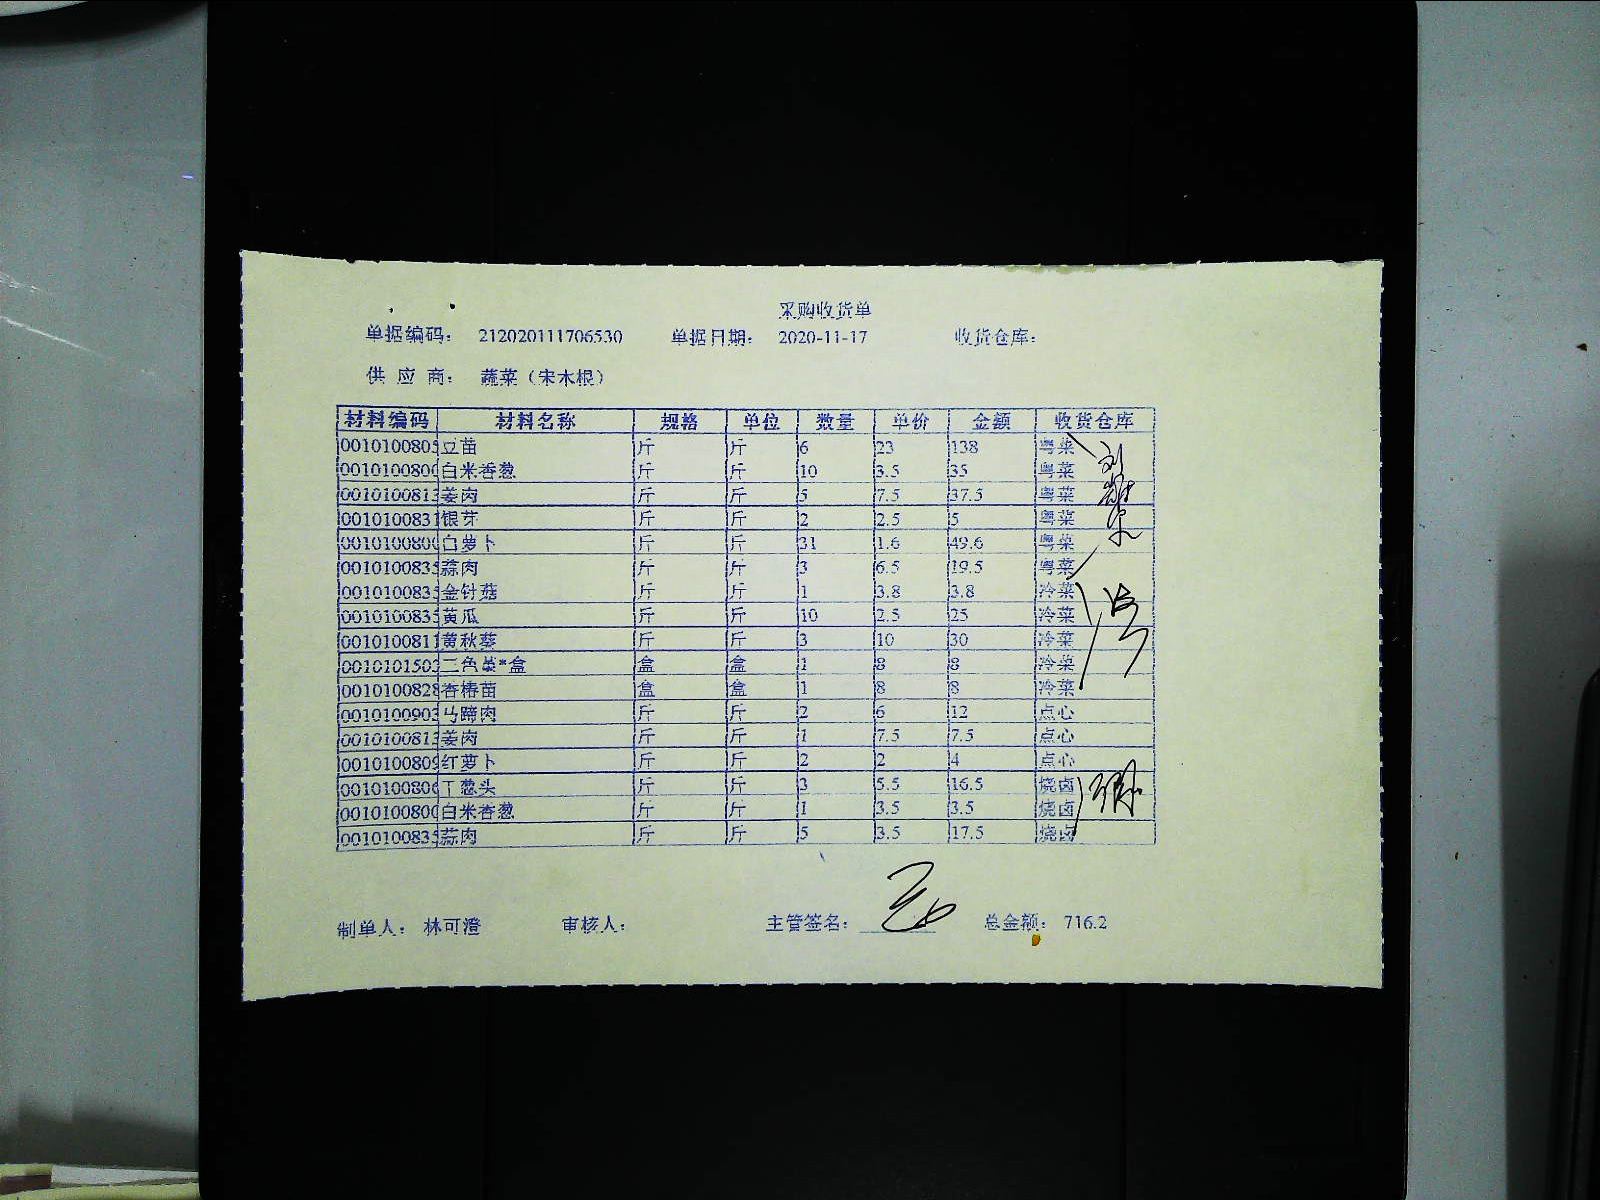 采购收货单
单据编码： 212020111706530 单据日期： 2020-11-17 收货仓库：
供 应 商： 蔬菜（宋木根）
材料编码 材料名称 规格 单位 数量 单价 金额 收货仓库
0010100805 豆苗 斤 斤 6 23 138 粤菜
001010080 白米香葱 斤 斤 10 3.5 35 粤菜
001010081 姜肉 斤 斤 5 7.5 37.5 粤菜
0010100831 银芽 斤 斤 2 2.5 5 粤菜
001010080 白萝卜 斤 斤 31 1.6 49.6 粤菜
001010083 蒜肉 斤 斤 3 6.5 19.5 粤菜
001010083 金针菇 斤 斤 1 3.8 3.8 冷菜
001010083 黄瓜 斤 斤 10 2.5 25 冷菜
0010100811 黄秋葵 斤 斤 3 10 30 冷菜
001010150 二色堇*盒 盒 盒 1 8 8 冷菜
0010100828 香椿苗 盒 盒 1 8 8 冷菜
001010090 马蹄肉 斤 斤 2 6 12 点心
001010081 姜肉 斤 斤 1 7.5 7.5 点心
0010100809 红萝卜 斤 斤 2 2 4 点心
001010080 干葱头 斤 斤 3 5.5 16.5 烧卤
001010080 白米香葱 斤 斤 1 3.5 3.5 烧卤
001010083 蒜肉 斤 斤 5 3.5 17.5 烧卤
制单人： 林可澄 审核人： 主管签名： 总金额： 716.2